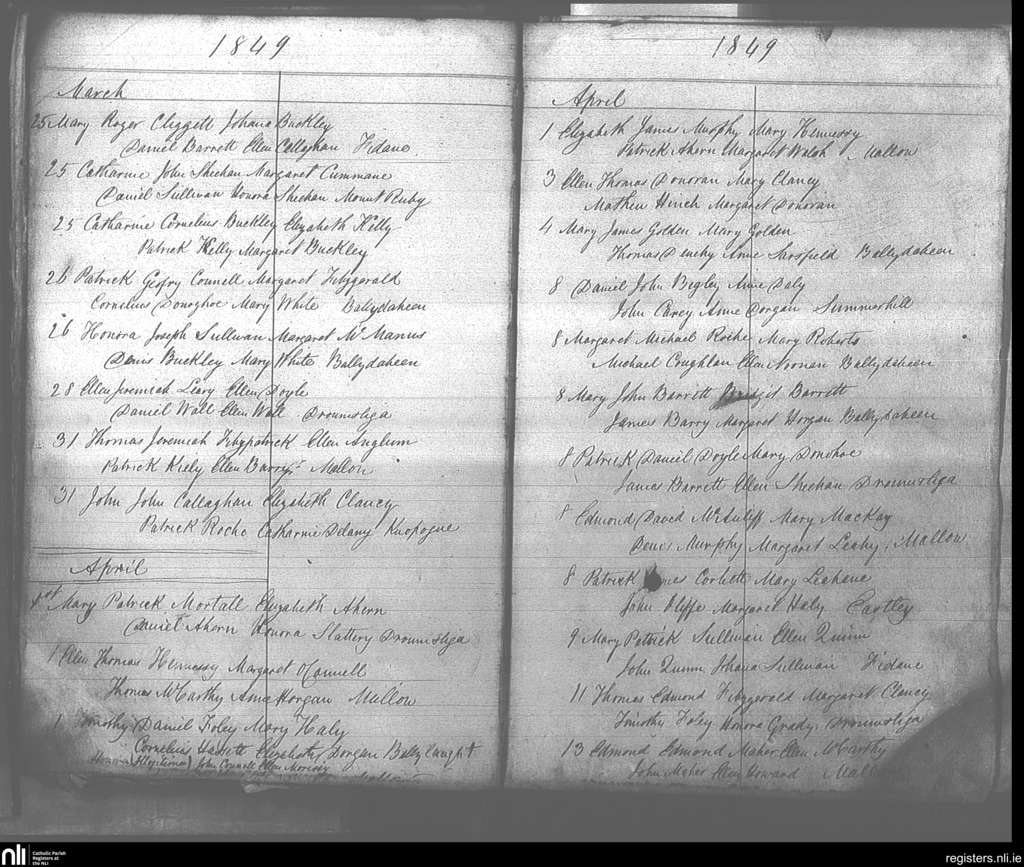 1849
March
25 Mary Roger Cliggett Johana Buckley
Daniel Barrett Ellen Callaghan Fidane
25 Catharine John Sheehan Margaret Cummane
Daniel Sullivan Honora Sheehan Mount
25 Catharine Cornelius Buckley Elizabeth Kelly
Patrick Kelly Margaret Buckley
26 Patrick Geofry Connell Margaret Fitzgerald
Cornelius Donoghoe Mary White Ballydaheen
26 Honora Joseph Sullivan Margaret McManus
Denis Buckley Mary White Ballydaheen
28 Ellen Jeremiah Leary Ellen Doyle
Daniel Wall Ellen Wall Dromsliga
31 Thomas Jeremiah Fitzpatrick Ellen Anglim
Patrick Kiely Ellen Barry Mallow
31 John John Callaghan Elizabeth Clancy
Patrick Roche Catharine Delany Knopogue
April
1st Mary Patrick Mortall Elizabeth Ahern
Daniel Ahern Honora Slattery Dromsliga
1 Ellen Thomas Hennessy Margaret OConnell
Thomas McCarthy Anne Horgan Mallow
1 Timothy Daniel Foley Mary Haly
Cornelius Elizabeth Dorgan
Honora John Connell Ellen
1849
April
1 Elizabeth James Murphy Mary Hennessy
Patrick Ahern Margaret Walsh Mallow
3 Ellen Thomas Donovan Mary Clancy
Mathew Hinch Margaret Donovan
4 Mary James Golden Mary Golden
Thomas Denehy Anne Sarsfield Ballydaheen
8 Daniel John Begley Anne Daly
John Carey Anne Dorgan Summerhill
8 Margaret Michael Roche Mary Roberts
Michael Coughlan Ellen Noonan Ballydaheen
8 Mary John Barrett Bridget Barrett
James Barry Margaret Horgan Ballydaheen
8 Patrick Daniel Doyle Mary Donohoe
James Barrett Ellen Sheehan Dromsliga
8 Edmond David McAuliff Mary MacKay
Denis Murphy Margaret Leahy Mallow
8 Patrick Corbett Mary Leahane
John Iliffe Margaret Haly
9 Mary Patrick Sullivan Ellen Quinn
John Quinn Johana Sullivan Fidane
11 Thomas Edmond Fitzgerald Margaret Clancy
Timothy Foley Honora Grady Dromsliga
13 Edmond Edmond Maher Ellen McCarthy
John Maher Ellen Howard
nli
Catholic Parish
Registers at
the NLI
registers.nli.ie